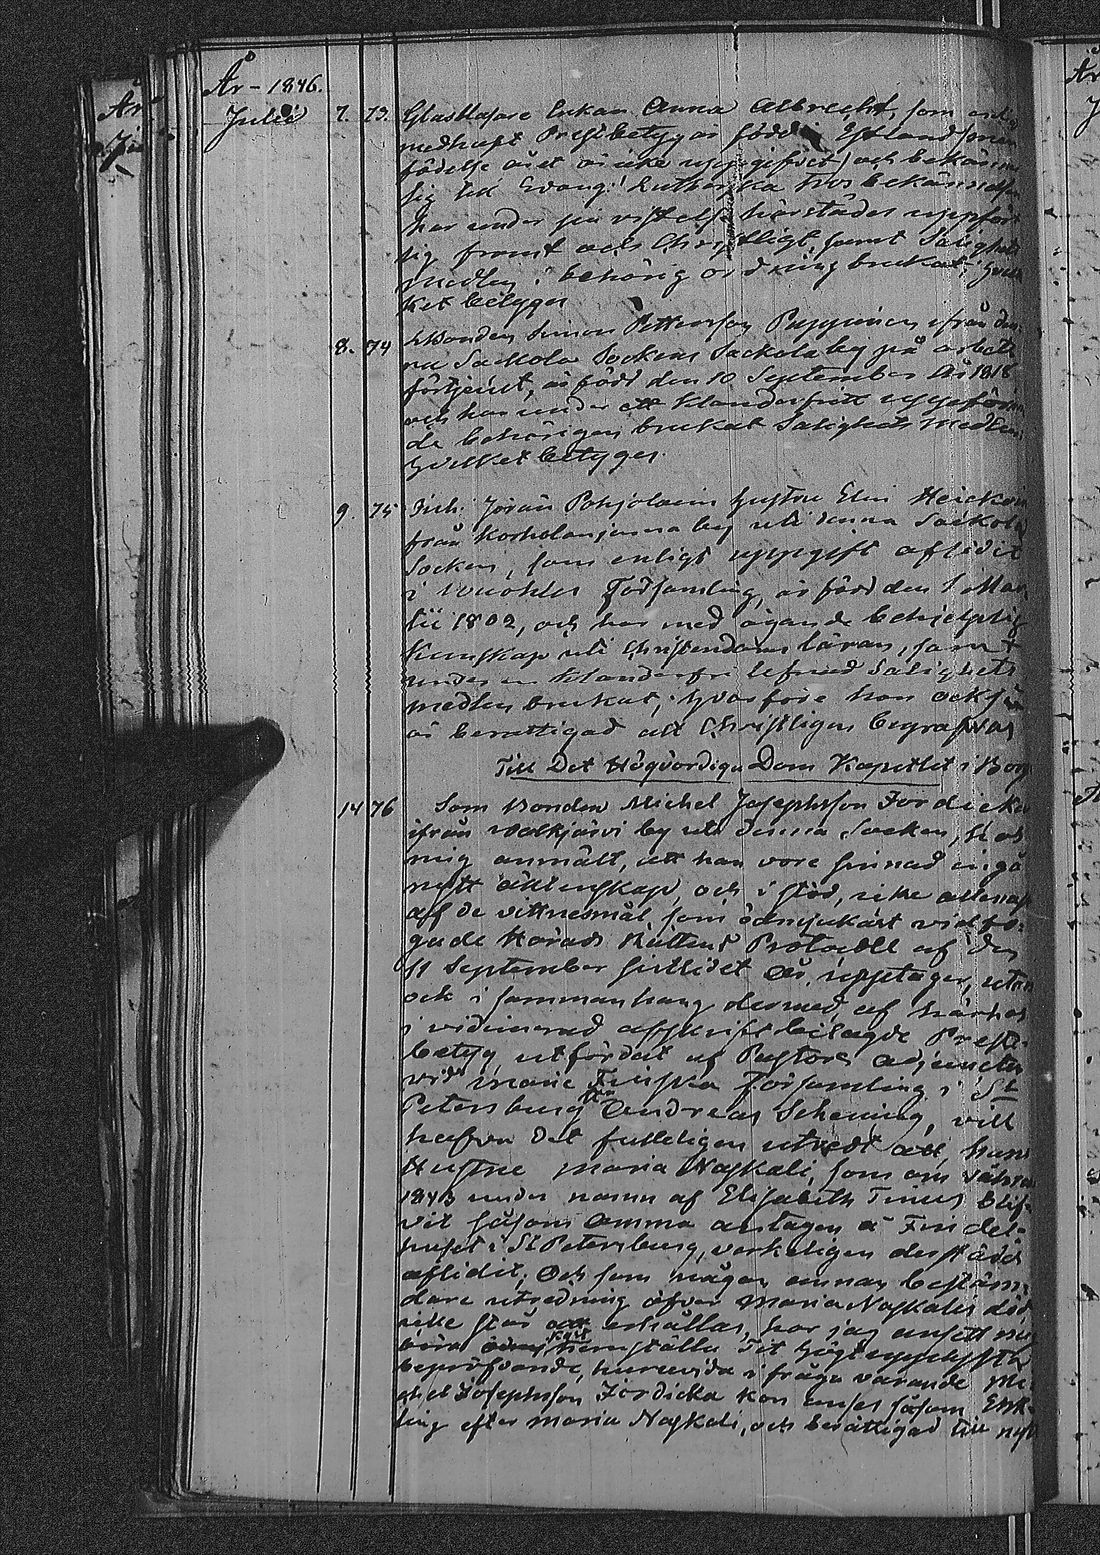 År - 1846.
Julii 7. 73. Glasblåsare Enkan Anna Albrecht, som enligt
medhaft Prestbetyg är född i Estland (men
födelse året är icke uppgifvet) och bekänner
sig till Evang: Lutherska trosbekännelse
har under sin vistelse härstädes uppfört
sig fromt och Christligt, samt Salighets
medlen i behörig ordning brukat; hvil-
ket betygas
8. 74 Bonden Simon Pettersson Puppinen ifrån den-
na Sackola Socken Sackola by på arbets
förtjenst, är född den 10 September År 1818.
och har under ett klanderfritt uppföran-
de behörigen brukat Salighets medlen,
hvilket betygas.
9. 75 Inh. Jöran Pohjolains hustru Elin Heickon
från Korholanjama by uti denna Sackola
Socken, som enligt uppgift aflidit
i Församling, är född den 1 Mar-
tii 1802, och har med ägande behjelplig
kunskap uti Christendoms läran, samt
under en klanderfri lefnad Salighets
medlen brukat; hvarföre hon också
är berättigad att Christligen begrafvas
Till Det Högvördiga Dom Kapitlet i Borgå
14 76 Som Bonden Michel Josephsson Fordicka
ifrån Walkjärvi by uti denna Socken, hos
mig anmält, att han vore sinnad ingå
nytt äktenskap, och i stöd, icke allenast
af de vittnesmål som ödmjukast vidfo-
gade Härads Rättens Protocoll af den
11 September sistlidet År upptager, utan
ock i sammanhang dermed af härhos
i vidimerad afskrift bilagde Prest-
betyg utfärdat af Pastors adjuncten
vid Marie Finska Församling i St
Petersburg Andreas Schening, vill
hafva det fulleligen utredt att hans
Hustru Maria Naskali, som om våren
1843 under namn af Elisabeth Blif-
vit såsom Amma antagen å Findel-
huset i St Petersburg, verkeligen derstädes
aflidit; Och som någon annan bestäm-
dare utredning öfver Maria Naskalis död
icke står att erhållas, har jag ansett mig
böra hemställa Till högtupplysta
bepröfvande, huruvida i fråga varande Mi-
chel Josephsson Fordicka kan anses såsom Enk-
ling efter Maria Naskali, och berättigad till nytt